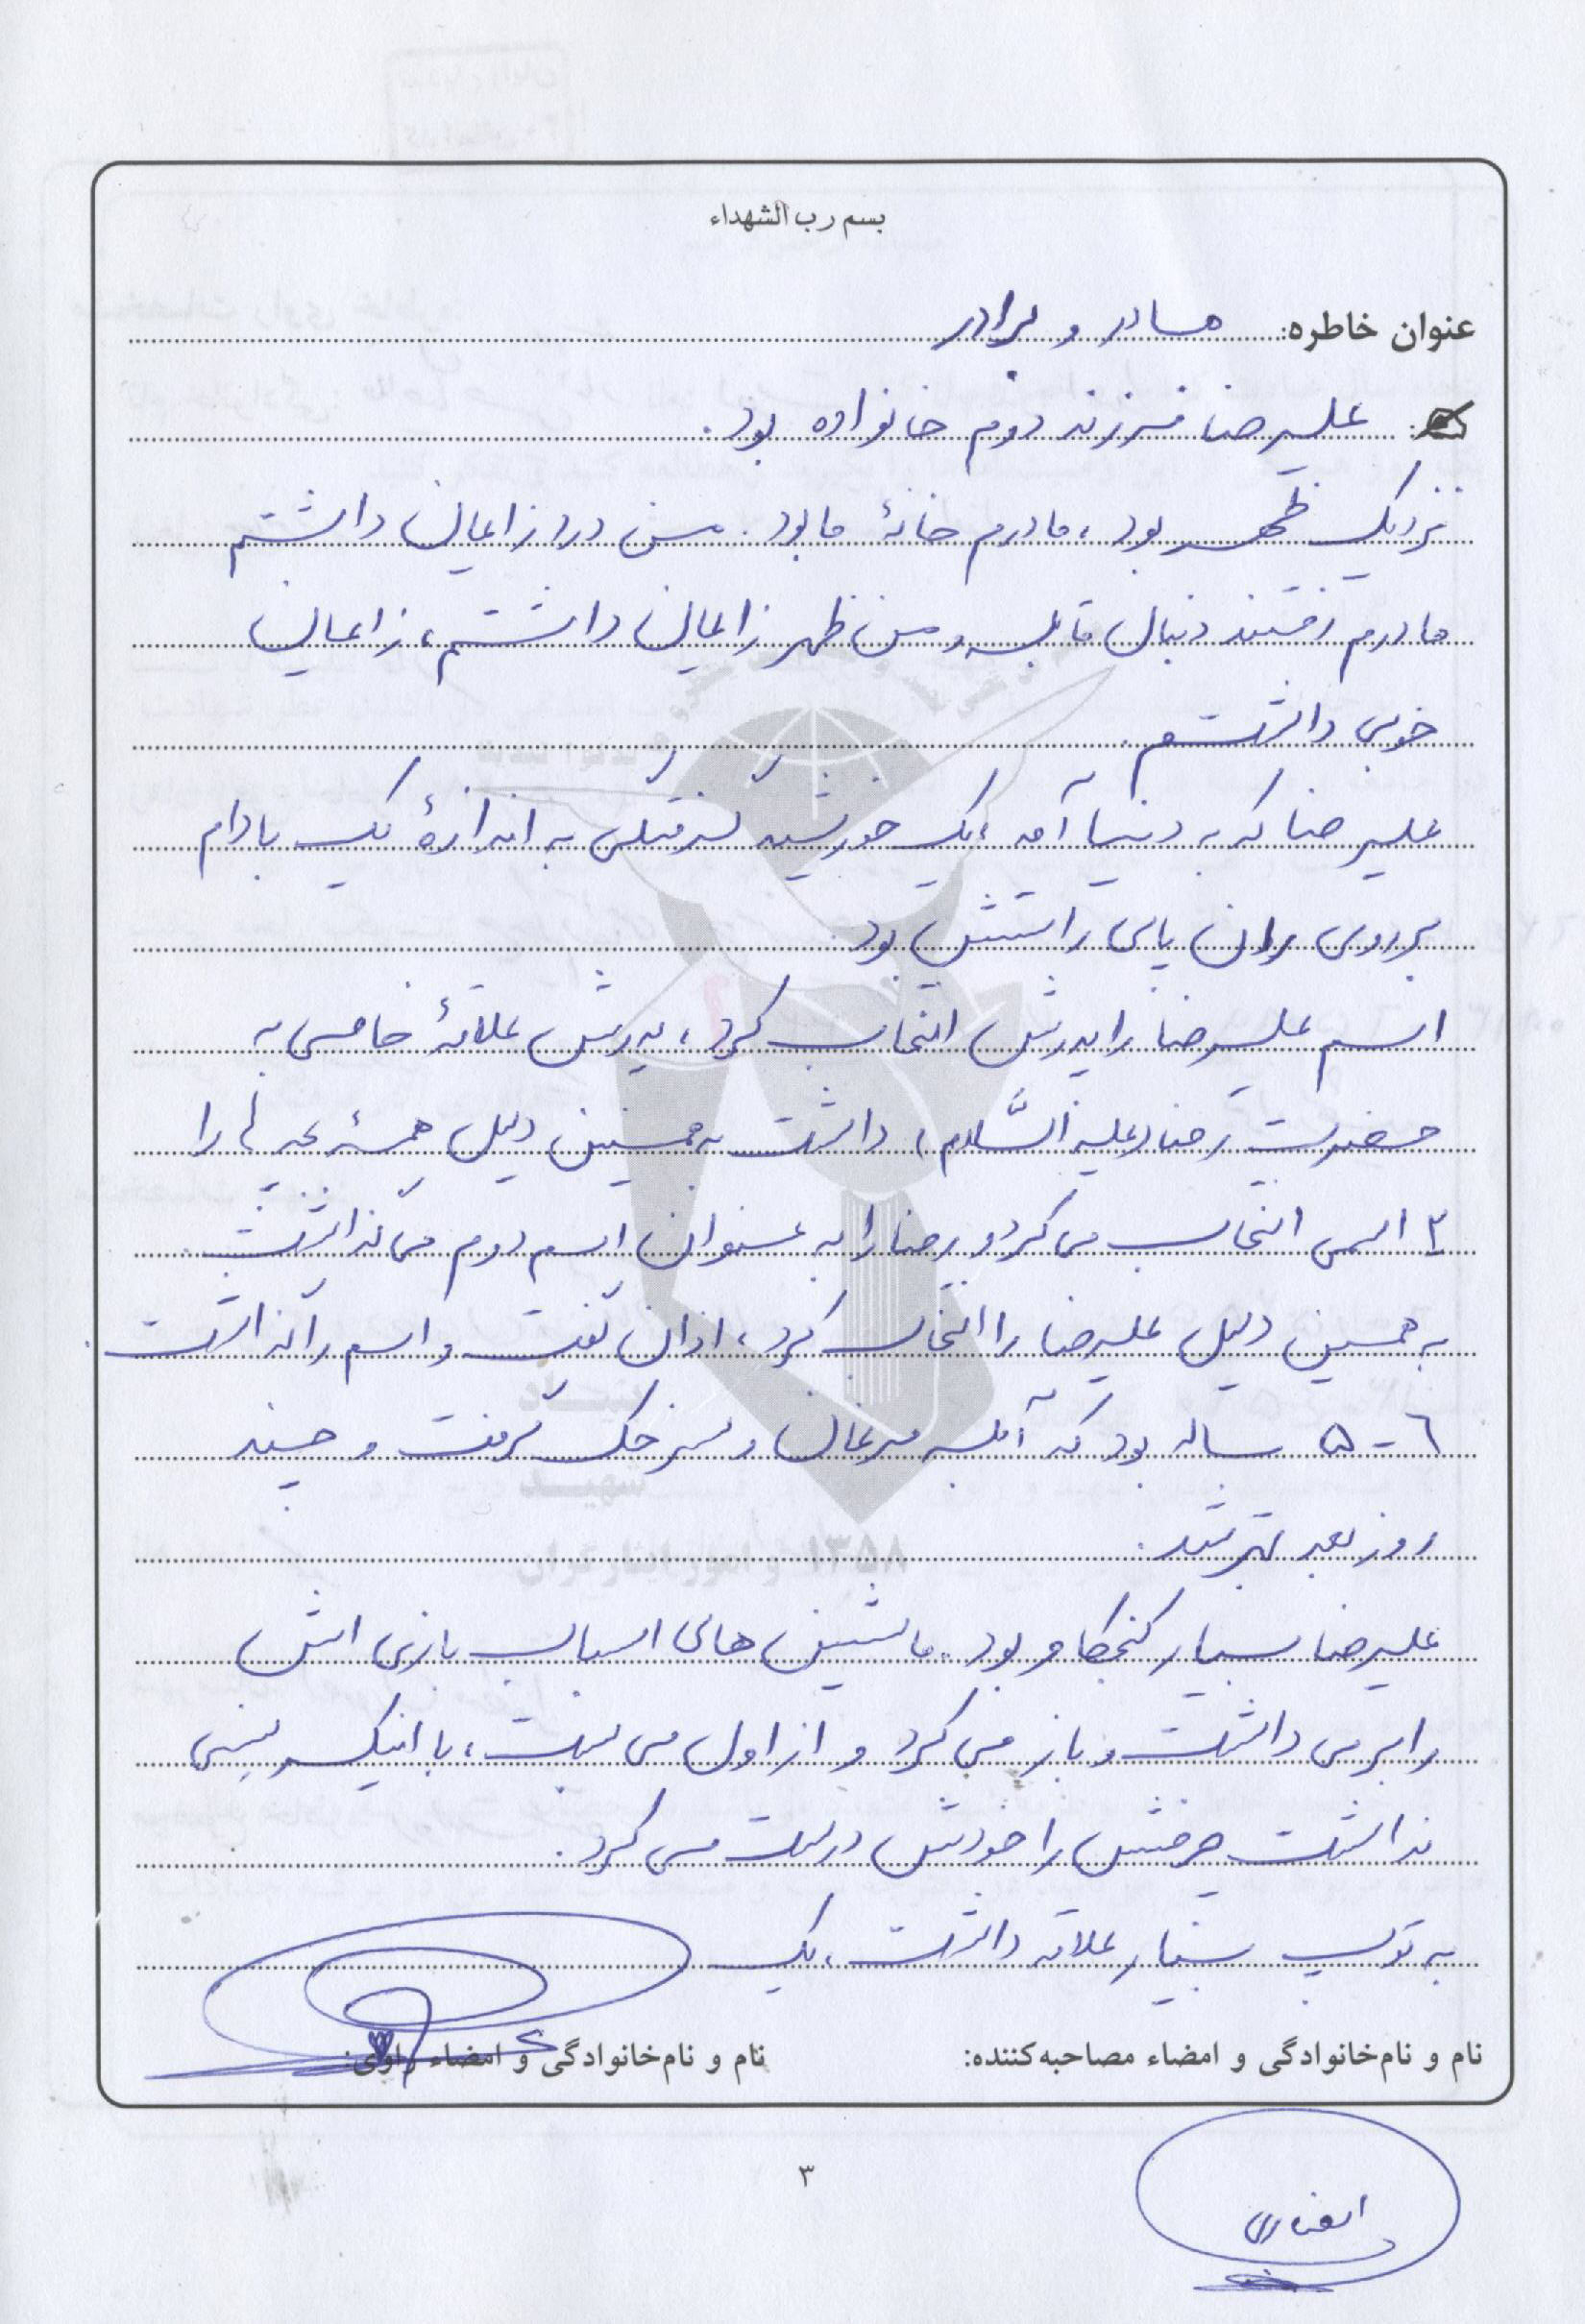 بسم رب الشهداء
عنوان خاطره: مادر و برادر
علیرضا فرزند دوم خانواده بود.
نزدیک ظهر بود، مادرم خانهٔ ما بود. من درد زایمان داشتم
مادرم رفتند دنبال قابله و من ظهر زایمان داشتم، زایمان
خوبی داشتم.
علیرضا که به دنیا آمد، یک خورشید گرفتگی به اندازهٔ یک بادام
بر روی ران پای راستش بود.
اسم علیرضا را پدرش انتخاب کرد، پدرش علاقهٔ خاصی به
حضرت رضا (علیه السَّلام) داشت به همین دلیل همهٔ بچه‌ها را
۲ اسمی انتخاب می کرد و رضا را به عنوان اسم دوم می گذاشت.
به همین دلیل علیرضا را انتخاب کرد، اذان گفت و اسم را گذاشت.
۵-۶ ساله بود که آبله مرغان و سرخک گرفت و چند
روز بعد بهتر شد.
علیرضا بسیار کنجکاو بود. ماشین های اسباب بازی اش
را برمی داشت و باز می کرد و از اول می بست، با اینکه سنی
نداشت چرخش را خودش درست می کرد.
به توپ بسیار علاقه داشت، یک
نام و نام‌خانوادگی و امضاء مصاحبه‌کننده: نام و نام‌خانوادگی و امضاء راوی:
۳
۱۳۵۸